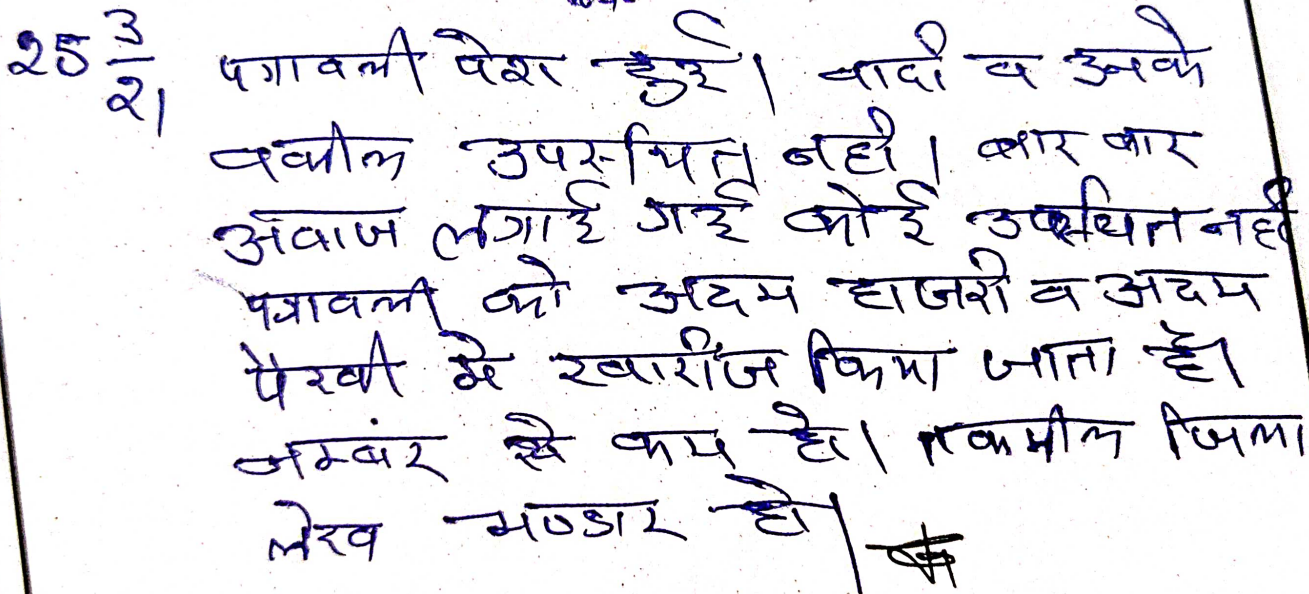 25 3/21 पत्रावली पेश हुई। वादी व उनके
वकील उपस्थित नही। बार बार
अवाज लगाई गई कोई उपस्थित नही
पत्रावली को अदम हाजरी व अदम
पैरवी मे खारीज किया जाता है।
नम्बर से कम हो। तकमील जिला
लेख भण्डार हो।